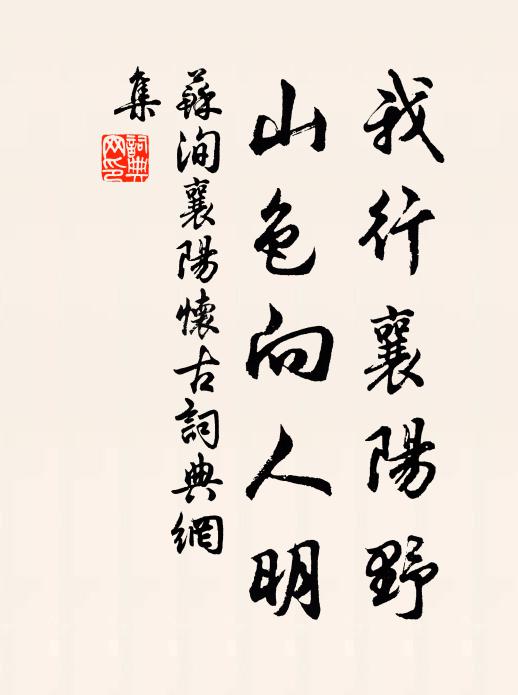 我行襄陽野
山色向人明
蘇洵襄陽懷古詞典網
集
詞典
網印